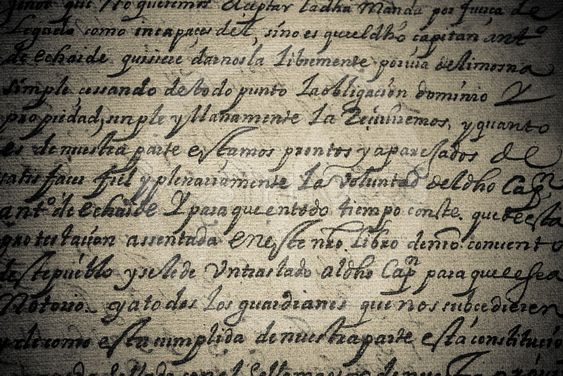 señor que no queremos aceptar la dha manda por fuerça de
legado como incapaces del, sino es que el dho capitan antº
de echaide, quisiere darnosla libremente por via de limosna
simple cessando de todo punto la obligación dominio y
propiedad, simple y llanamente la recivíremos, y quanto
es de nuestra parte estamos prontos y aparejados de
satisfacer fiel y plenariamente la voluntad del dho Capⁿ
antº de echaide y para que en todo tiempo conste, que de esta
protestaçion assentada en este nrº libro de nrô convento
de este pueblo y se le de un traslado al dho Capⁿ para que sea
notorio y a todos los guardianes que nos subcedieren
y de como esta cumplida de nuestra parte está constituciô